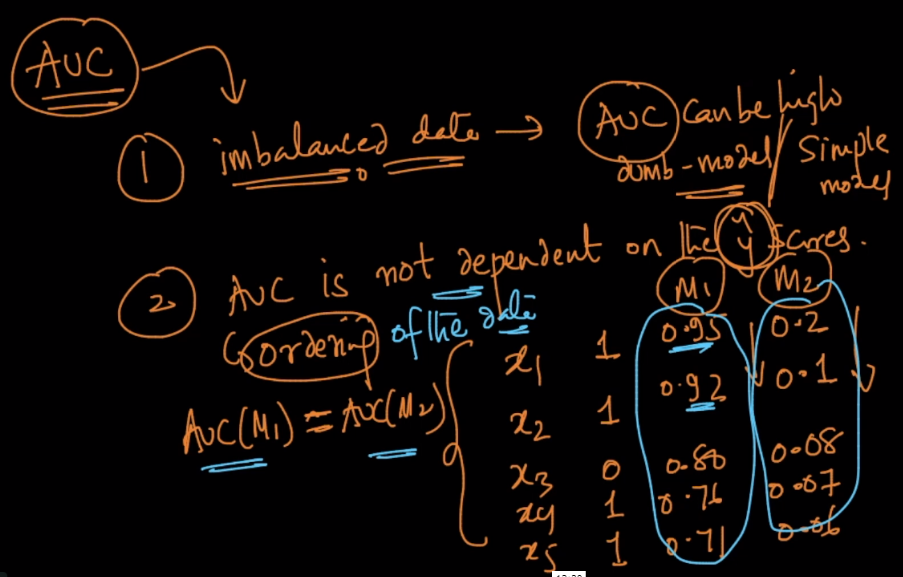 AUC
1 imbalanced data → AUC can be high
dumb-model / Simple model
2 AUC is not dependent on the ŷ scores.
ordering of the data
M1 M2
x1 1 0.95 0.2
x2 1 0.92 0.1
AUC(M1) = AUC(M2)
x3 0 0.80 0.08
x4 1 0.76 0.07
x5 1 0.71 0.06